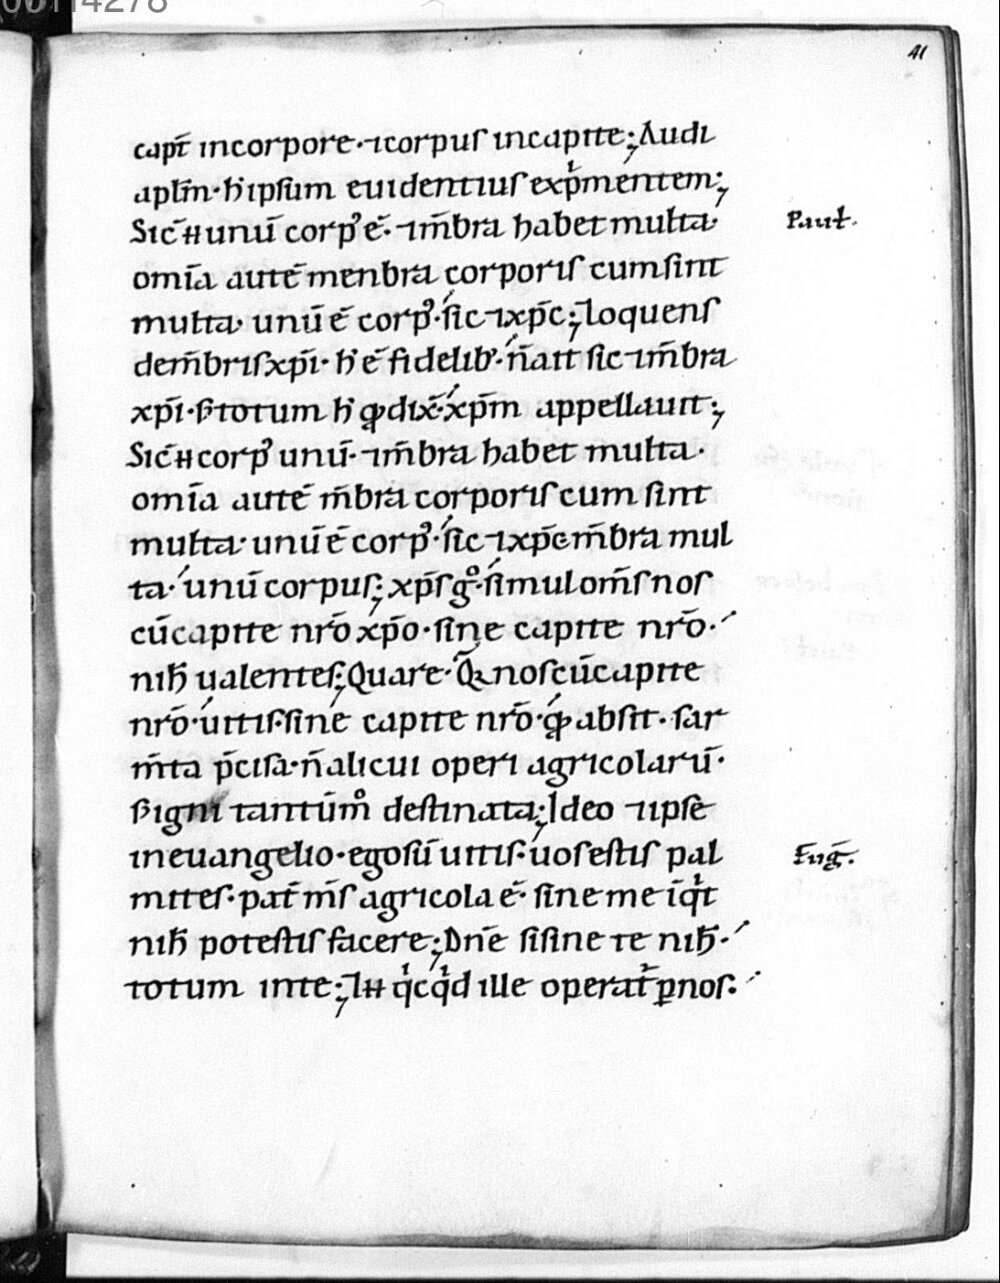 00114278
41
capt̄ incorpore·⁊corpuſ incapite; Audi
apl̄m·h̓ipſum euidentiuſ exp̍mentem;
Sic̄ ħ unū corpꝰ ē·⁊m̄bra habet multa·
Paul̄.
om̄ia autē menbra corporiſ cumſint
multa· unū ē corpꝰ·ſic ⁊xp̄c; Loquenſ
dem̄briſ xp̄i·h̓ ē fidelib᾽·n̄ait ſic ⁊m̄bra
xp̄i·ß totum h̓ qͥ dix̄·xp̄m appellauit;
Sic̄ ħ corpꝰ unū·⁊m̄bra habet multa·
om̄ia autē m̄bra corporiſ cum ſint
multa·unū ē corpꝰ·ſic ⁊xp̄c m̄bra mul
ta· unū corpuſ; xp̄ſ gͦ·ſimul om̄ſ noſ
cū capite nr̄o xp̄o·ſine capite nr̄o·
nih̄ ualenteſ; Quare·Q̄ noſ cū capite
nr̄o·uitiſ·ſine capite nr̄o·qͥ abſit·ſar
m̄ta p̄ciſa·n̄ alicui operi agricolarū·
ß igni tantūmͦ deſtinata; Ideo ⁊ipſe
ineuangelio·ego ſū uitiſ·uoſ eſtiſ pal
Eug̅.
miteſ·pat̄ m̄ſ agricola ē·ſine me īqͥt
nih̄ poteſtiſ facere; Dn̄e ſi ſine te nih̄·
totum inte; Iħ qͥcqͥd ille operat̓ ꝑnoſ·